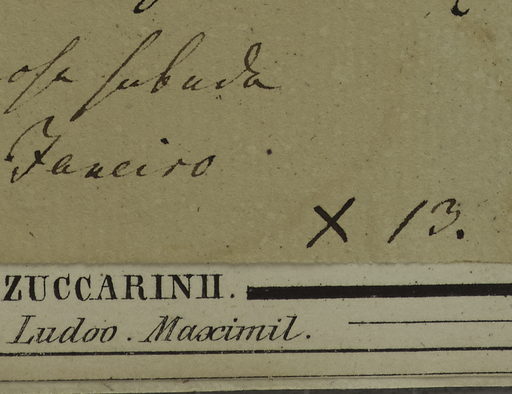 Janeiro.
X 13.
ZUCCARINII.
Ludov. Maximil.